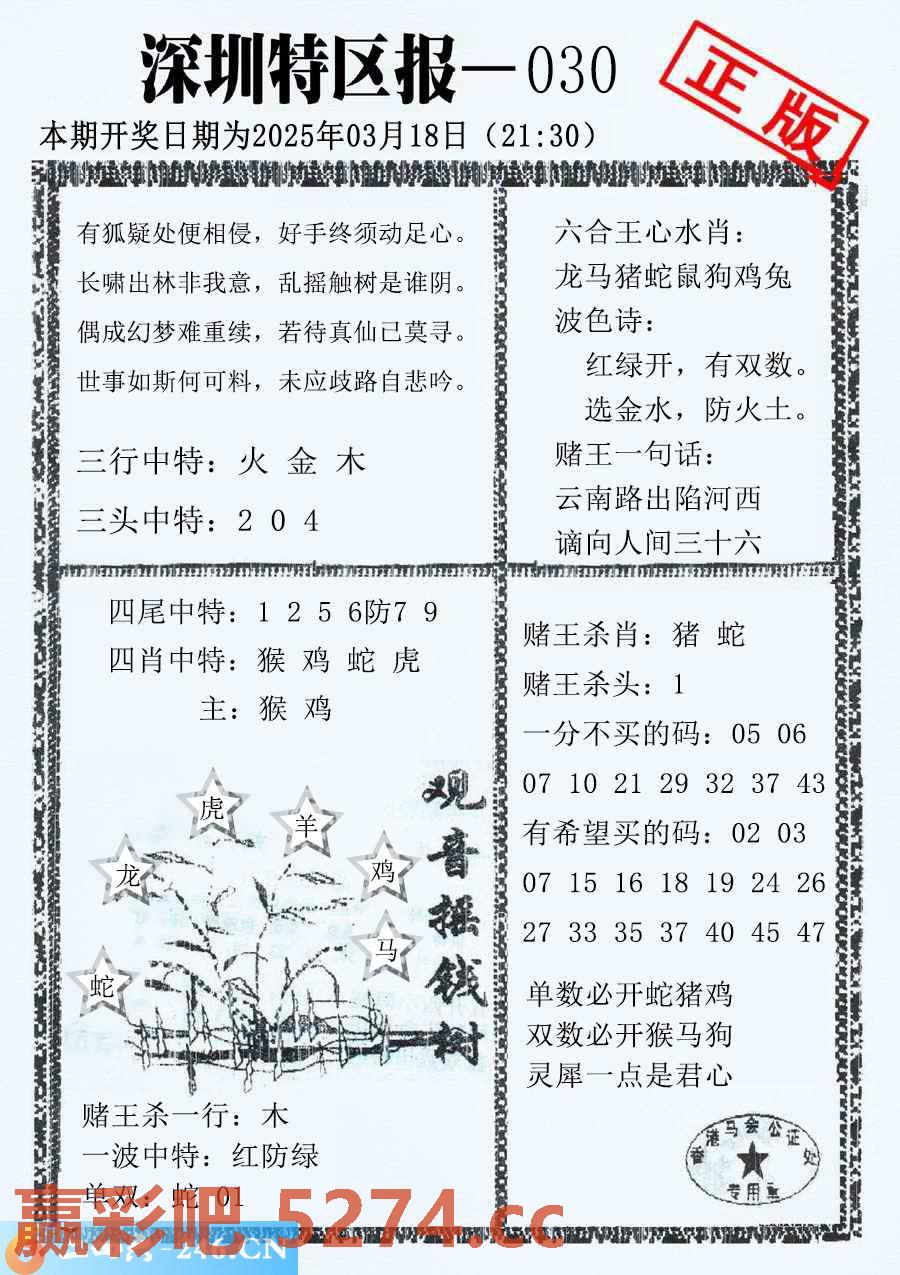 深圳特区报—030
正版
本期开奖日期为2025年03月18日（21:30）
有狐疑处便相侵，好手终须动足心。
长啸出林非我意，乱摇触树是谁阴。
偶成幻梦难重续，若待真仙已莫寻。
世事如斯何可料，未应歧路自悲吟。
三行中特：火 金 木
三头中特：2 0 4
六合王心水肖：
龙马猪蛇鼠狗鸡兔
波色诗：
红绿开，有双数。
选金水，防火土。
赌王一句话：
云南路出陷河西
谪向人间三十六
四尾中特：1 2 5 6防7 9
四肖中特：猴 鸡 蛇 虎
主：猴 鸡
虎
羊
龙
鸡
马
蛇
观音摇钱树
赌王杀一行：木
一波中特：红防绿
单双：蛇 01
赌王杀肖：猪 蛇
赌王杀头：1
一分不买的码：05 06
07 10 21 29 32 37 43
有希望买的码：02 03
07 15 16 18 19 24 26
27 33 35 37 40 45 47
单数必开蛇猪鸡
双数必开猴马狗
灵犀一点是君心
香港马会公证处
专用章
赢彩吧 5274.cc
-246.CN